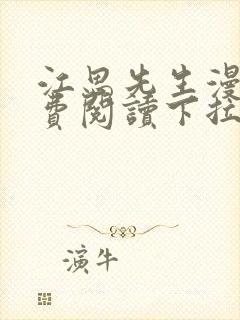 江畏先生漫
費閱讀下拉
演牛